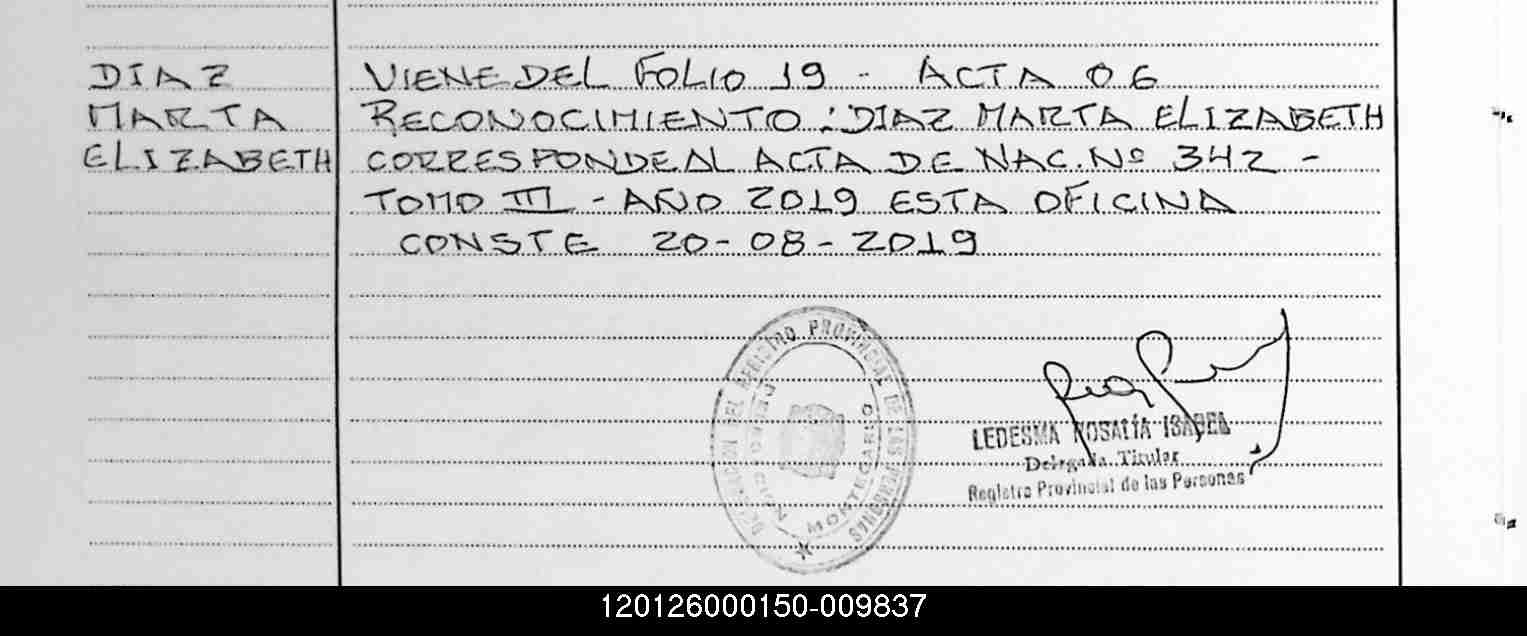 DIAZ
MARTA
ELIZABETH
VIENE DEL FOLIO 19 - ACTA 06
RECONOCIMIENTO: DIAZ MARTA ELIZABETH
CORRESPONDE AL ACTA DE NAC. Nº 342 -
TOMO III - AÑO 2019 ESTA OFICINA
CONSTE 20-08-2019
DELEGACION DEL REGISTRO PROVINCIAL DE LAS PERSONAS
MONTECARLO
LEDESMA ROSALÍA ISABEL
Delegada Titular
Registro Provincial de las Personas
120126000150-009837